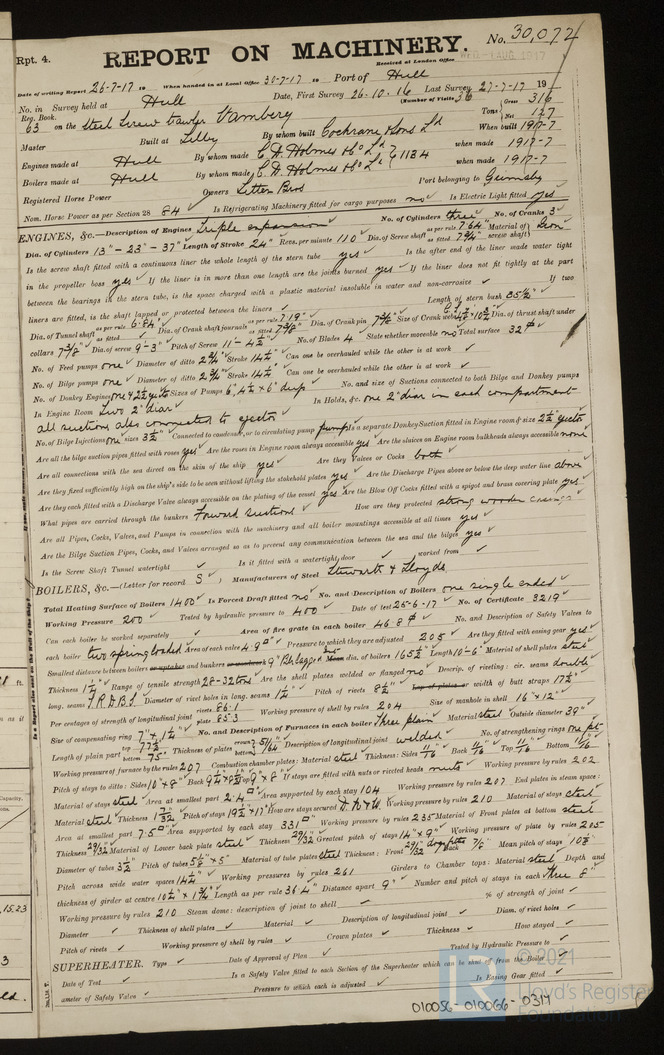 Rpt. 4.
No. 30,072
REPORT ON MACHINERY.
Received at London Office WED. 1 AUG. 1917
Date of writing Report 26-7-17 19 When handed in at Local Office 30-7-17 19 Port of Hull
No. in Survey held at Hull Date, First Survey 26-10-16 Last Survey 27-7-17 19
Reg. Book. (Number of Visits 36
63 on the Steel Screw Trawler Vambery Tons Gross 316 Net 127
Master Built at Selby By whom built Cochrane & Sons Ld When built 1917-7
Engines made at Hull By whom made C. D. Holmes & Co Ld 1134 when made 1917-7
Boilers made at Hull By whom made C. D. Holmes & Co Ld when made 1917-7
Registered Horse Power Owners Sitten Bros Port belonging to Grimsby
Nom. Horse Power as per Section 28 84 Is Refrigerating Machinery fitted for cargo purposes no Is Electric Light fitted yes
ENGINES, &c.—Description of Engines Triple expansion No. of Cylinders three No. of Cranks 3
Dia. of Cylinders 13" - 23" - 37" Length of Stroke 24" Revs. per minute 110 Dia. of Screw shaft as per rule 7.64" as fitted 7¾" Material of screw shaft Iron
Is the screw shaft fitted with a continuous liner the whole length of the stern tube yes Is the after end of the liner made water tight
in the propeller boss yes If the liner is in more than one length are the joints burned yes If the liner does not fit tightly at the part
between the bearings in the stern tube, is the space charged with a plastic material insoluble in water and non-corrosive If two
liners are fitted, is the shaft lapped or protected between the liners Length of stern bush 35½"
Dia. of Tunnel shaft as per rule 6.84" as fitted Dia. of Crank shaft journals as per rule 7.19" as fitted 7⅜" Dia. of Crank pin 7⅜" Size of Crank webs Dia. of thrust shaft under
collars 7⅜" Dia. of screw 9'-3" Pitch of Screw 11'-4½" No. of Blades 4 State whether moveable no Total surface 32
No. of Feed pumps one Diameter of ditto 2¾" Stroke 14½" Can one be overhauled while the other is at work
No. of Bilge pumps one Diameter of ditto 2¾" Stroke 14½" Can one be overhauled while the other is at work
No. of Donkey Engines one & 2½" ejector Sizes of Pumps 6", 4½" x 6" dup No. and size of Suctions connected to both Bilge and Donkey pumps
In Engine Room Two 2" diar In Holds, &c. one 2" diar in each compartment
all suctions also connected to ejector
No. of Bilge Injections one sizes 3½" Connected to condenser, or to circulating pump pump Is a separate Donkey Suction fitted in Engine room & size 2½" ejector
Are all the bilge suction pipes fitted with roses yes Are the roses in Engine room always accessible yes Are the sluices on Engine room bulkheads always accessible none
Are all connections with the sea direct on the skin of the ship yes Are they Valves or Cocks both
Are they fixed sufficiently high on the ship's side to be seen without lifting the stokehold plates yes Are the Discharge Pipes above or below the deep water line above
Are they each fitted with a Discharge Valve always accessible on the plating of the vessel yes Are the Blow Off Cocks fitted with a spigot and brass covering plate yes
What pipes are carried through the bunkers Forward suctions How are they protected strong wooden casings
Are all Pipes, Cocks, Valves, and Pumps in connection with the machinery and all boiler mountings accessible at all times yes
Are the Bilge Suction Pipes, Cocks, and Valves arranged so as to prevent any communication between the sea and the bilges yes
Is the Screw Shaft Tunnel watertight Is it fitted with a watertight door worked from
BOILERS, &c.—(Letter for record S) Manufacturers of Steel Stewarts & Lloyds
Total Heating Surface of Boilers 1400 Is Forced Draft fitted no No. and Description of Boilers one single ended
Working Pressure 200 Tested by hydraulic pressure to 400 Date of test 25-6-17 No. of Certificate 3219
Can each boiler be worked separately Area of fire grate in each boiler 46.8 No. and Description of Safety Valves to
each boiler two spring loaded Area of each valve 4.9 Pressure to which they are adjusted 205 Are they fitted with easing gear yes
Smallest distance between boilers or uptakes and bunkers or woodwork 9" Mean dia. of boilers 165½" Length 10-6" Material of shell plates steel
Thickness 1¼" Range of tensile strength 28-32 tons Are the shell plates welded or flanged no Descrip. of riveting: cir. seams double
long. seams T R D B S Diameter of rivet holes in long. seams 1¼" Pitch of rivets 8½" Lap of plates or width of butt straps 17½"
Per centages of strength of longitudinal joint rivets 86.1 plate 85.3 Working pressure of shell by rules 204 Size of manhole in shell 16" x 12"
Size of compensating ring 7" x 1¼" No. and Description of Furnaces in each boiler three plain Material steel Outside diameter 39"
Length of plain part top 77½" bottom 75" Thickness of plates crown bottom 51/64" Description of longitudinal joint welded No. of strengthening rings
Working pressure of furnace by the rules 207 Combustion chamber plates: Material steel Thickness: Sides 11/16" Back 11/16" Top 11/16" Bottom
Pitch of stays to ditto: Sides 10" x 8" Back Top 9" x 8" If stays are fitted with nuts or riveted heads nuts Working pressure by rules 202
Material of stays steel Area at smallest part 2.4 Area supported by each stay 104 Working pressure by rules 207 End plates in steam space:
Material steel Thickness 1 7/32" Pitch of stays 19½" x 17" How are stays secured D. N. & W. Working pressure by rules 210 Material of stays steel
Area at smallest part 7.5 Area supported by each stay 331 Working pressure by rules 235 Material of Front plates at bottom steel
Thickness 29/32" Material of Lower back plate steel Thickness 29/32" Greatest pitch of stays 14" x 9" Working pressure of plate by rules 205
Diameter of tubes 3½" Pitch of tubes 5⅛" x 5" Material of tube plates steel Thickness: Front 29/32" Back 7/8" Mean pitch of stays 10⅛"
Pitch across wide water spaces 14½" Working pressures by rules 261 Girders to Chamber tops: Material steel Depth and
thickness of girder at centre 10½" x 1¾" Length as per rule 36.4" Distance apart 9" Number and pitch of stays in each three 8"
Working pressure by rules 210 Steam dome: description of joint to shell % of strength of joint
Diameter Thickness of shell plates Material Description of longitudinal joint Diam. of rivet holes
Pitch of rivets Working pressure of shell by rules Crown plates Thickness How stayed
SUPERHEATER. Type Date of Approval of Plan Tested by Hydraulic Pressure to
Date of Test Is a Safety Valve fitted to each Section of the Superheater which can be shut off from the Boiler
ameter of Safety Valve Pressure to which each is adjusted Is Easing Gear fitted
010056-010066-0314
© 2021
Lloyd's Register
Foundation